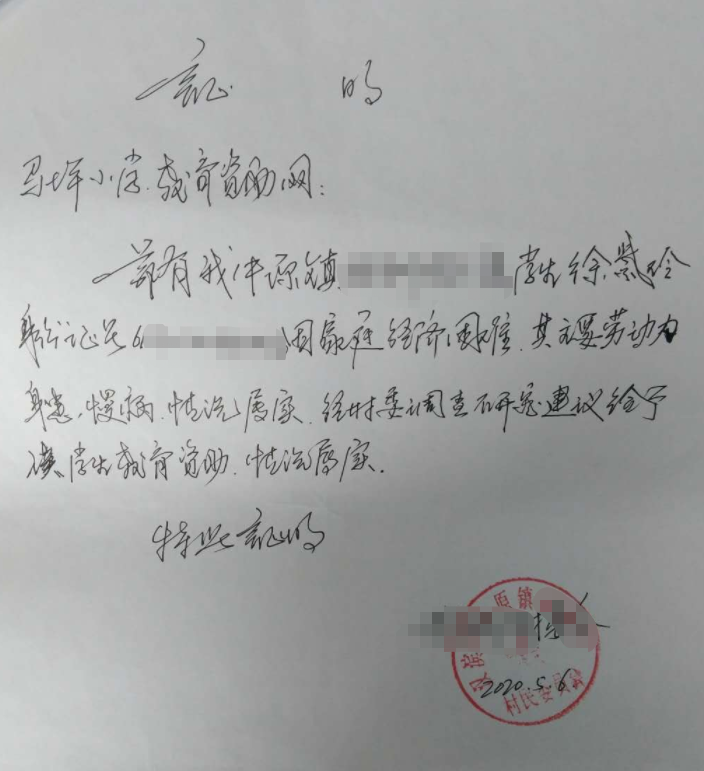 证 明
马坪小学教育资助网：
兹有我仲源镇 学生徐紫玲
身份证号6 因家庭经济困难，其主要劳动力
身患慢病，情况属实，经村委调查研究建议给予
该学生教育资助，情况属实。
特此证明
原镇
2020.5.6
村民委员会